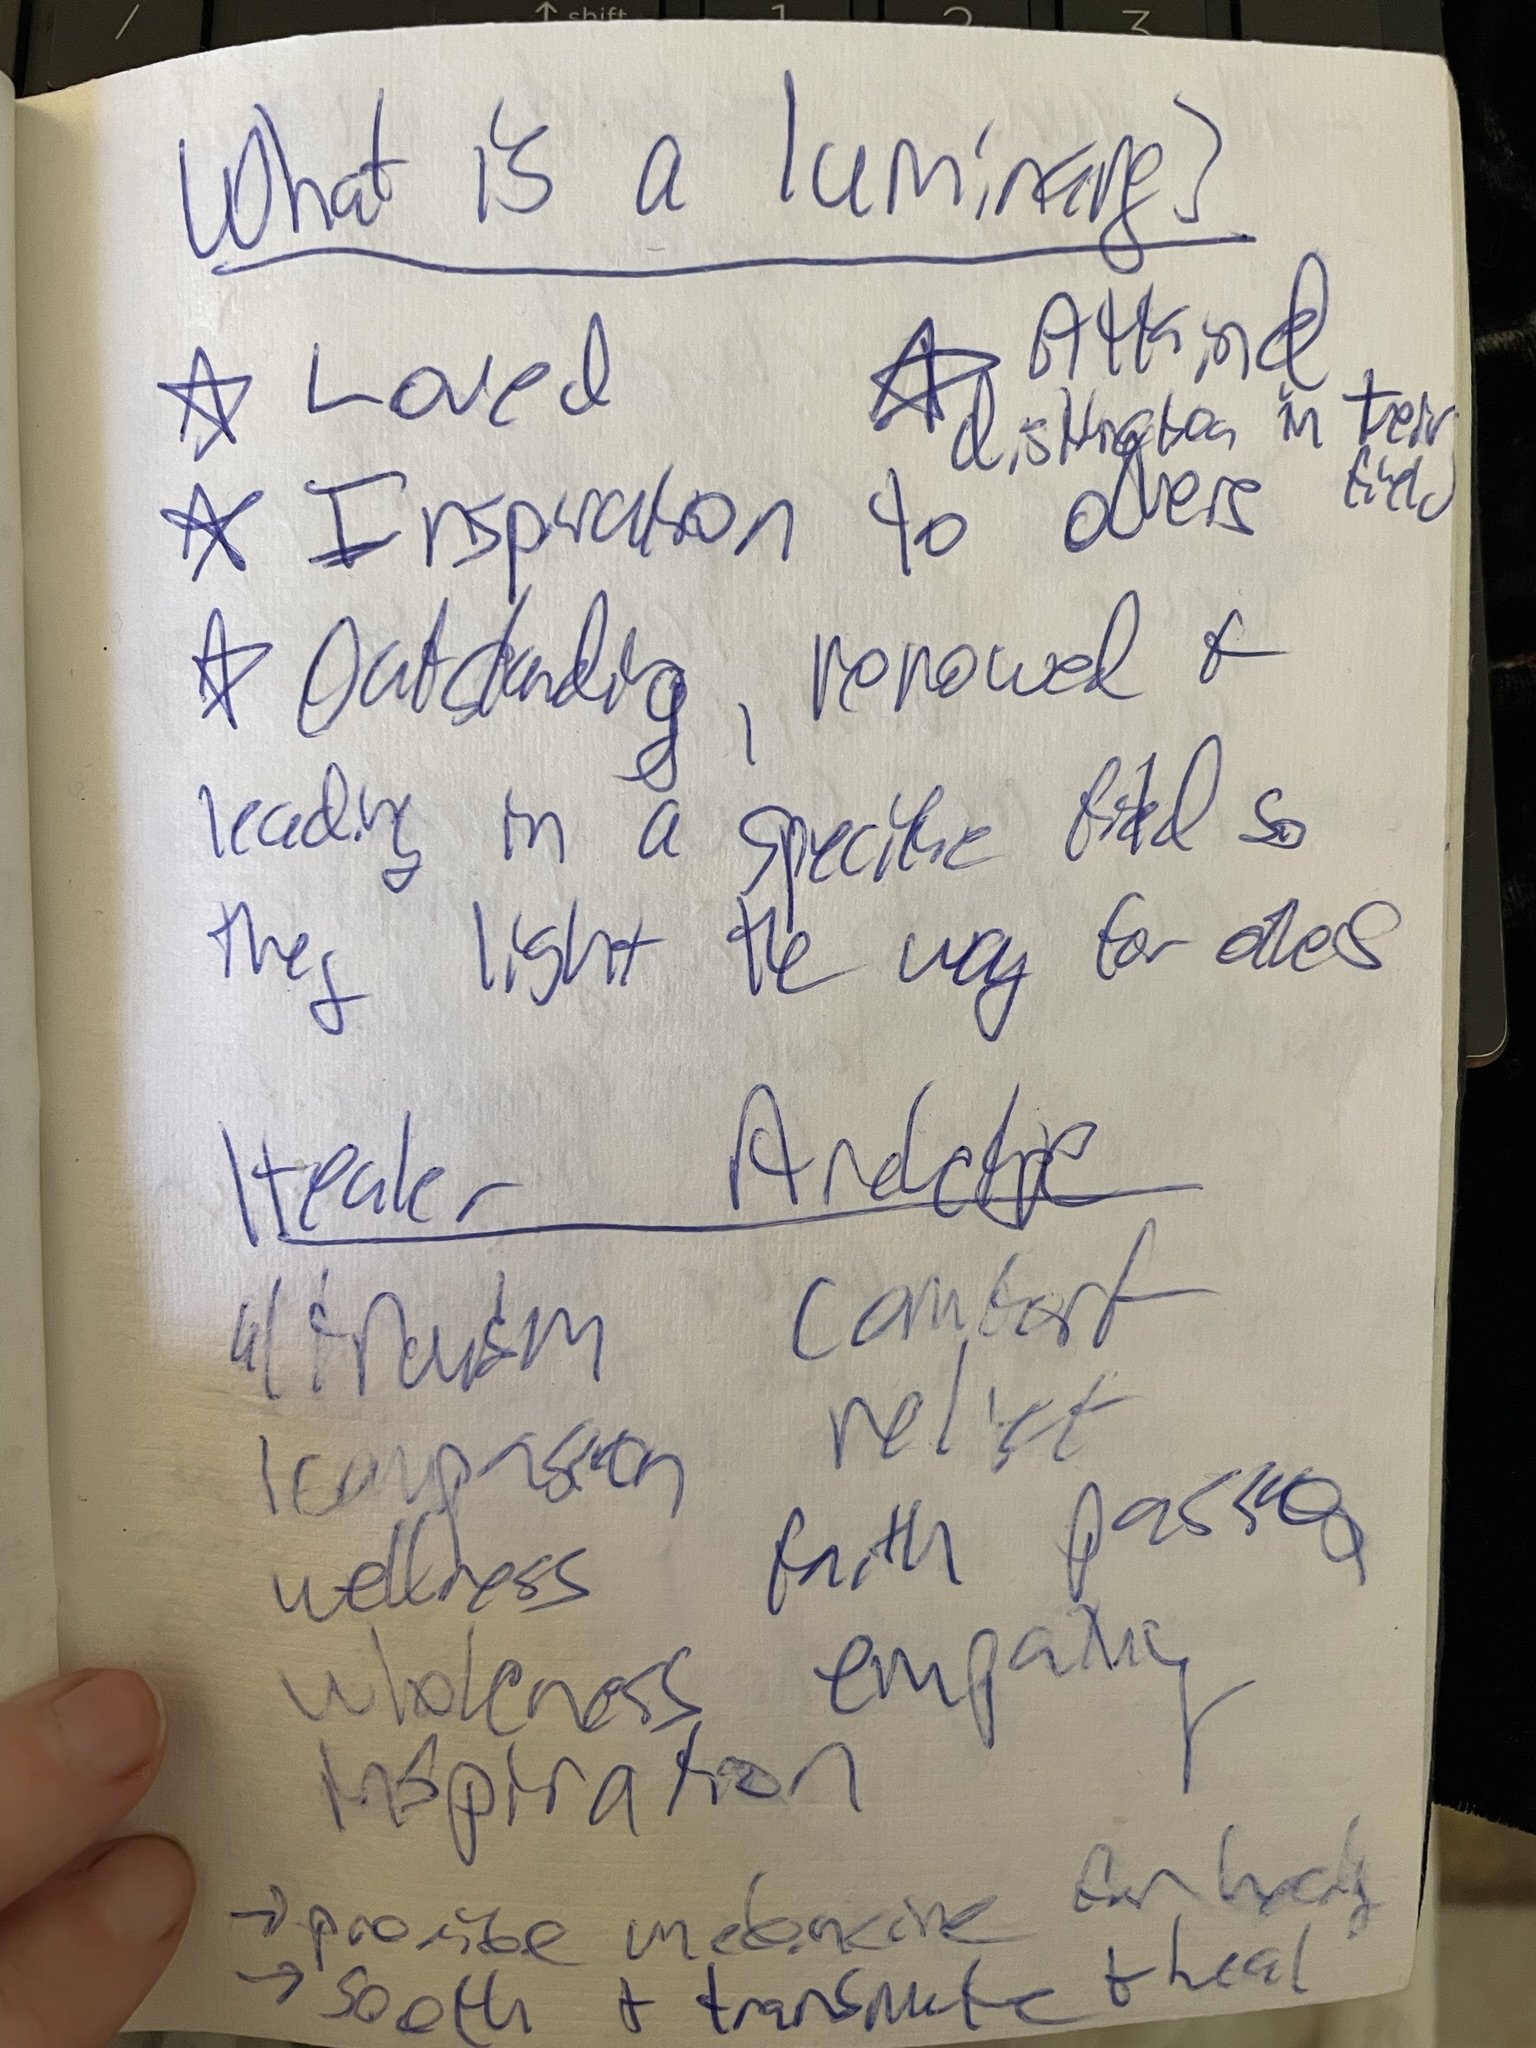 shift
1 2 3
What is a luminary?
☆ Loved
☆ Attained
distinction in their
field
☆ Inspiration to others
☆ Outstanding, renowed +
leading in a specific field so
they light the way for others
Healer Archetype
altruism comfort
compassion relief
wellness faith passion
wholeness empathy
inspiration
→ provide medicine for body
→ sooth + transmute + heal